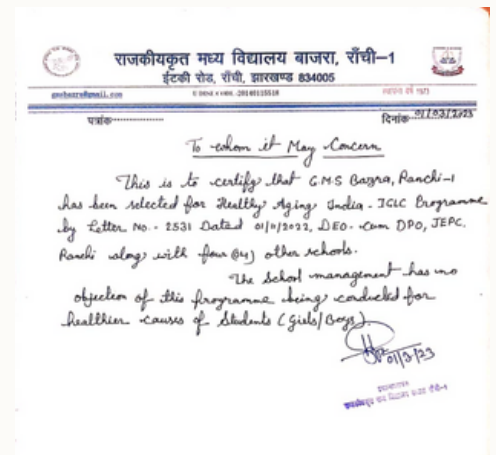 राजकीयकृत मध्य विद्यालय बाजरा, राँची–1
ईटकी रोड, राँची, झारखण्ड 834005
gmsbazra@gmail.com
स्थापना वर्ष 1973
पत्रांक
दिनांक 01/03/2023
To whom it May Concern
This is to certify that G.M.S Bazra, Ranchi-1
has been selected for Healthy Aging India - IGLC Programme
by Letter No. - 2531 Dated 01/11/2022, DEO. Cum DPO, JEPC,
Ranchi along with four (04) other schools.
The School management has no
objection of this programme being conducted for
healthier causes of Students (Girls/Boys).
01/3/23